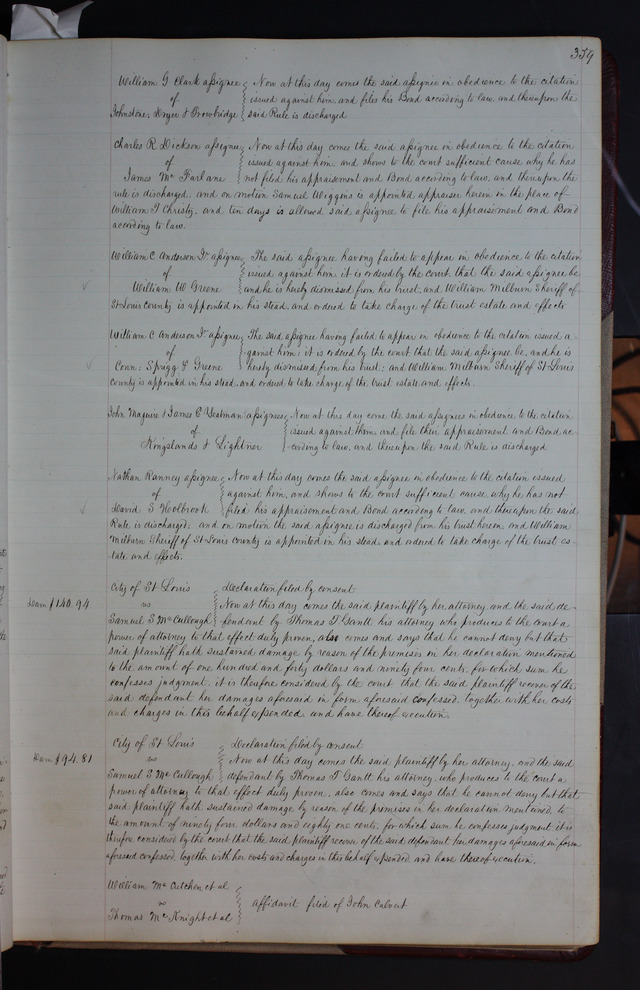 359
William G Clark assignee { Now at this day comes the said assignee in obedience to the citation
of { issued against him, and files his Bond according to law, and thereupon the
Johnstone, Dwyer & Trowbridge { said Rule is discharged
Charles R Dickson assignee { Now at this day comes the said assignee in obedience to the citation
of { issued against him, and shows to the court sufficient cause why he has
James Mc Farlane { not filed his appraisement and Bond according to law, and thereupon the
rule is discharged, and on motion Samuel Wiggins is appointed appraiser herein in the place of
William T Christy, and ten days is allowed said assignee to file his appraisement and Bond
according to law.
William C Anderson Jr assignee { The said assignee having failed to appear in obedience to the citation
of { issued against him it is ordered by the court, that the said assignee be
William W Greene { and he is hereby dismissed from his trust, and William Milburn Sheriff of
St Louis County is appointed in his stead, and ordered to take charge of the trust estate and effects
William C Anderson Jr assignee { The said assignee having failed to appear in obedience to the citation issued a-
of { gainst him; it is ordered by the court that the said assignee be, and he is
Conn: Sprigg & Greene { hereby dismissed from his trust: and William Milburn Sheriff of St Louis
County is appointed in his stead, and ordered to take charge of the trust estate and effects.
John Maguire & James E Yeatman assignees { Now at this day come the said assignees in obedience to the citation
of { issued against them and file their appraisement and Bond ac-
Kingslands & Lightner { cording to law, and thereupon the said Rule is discharged
Nathan Ranney assignee { Now at this day comes the said assignee in obedience to the citation issued
of { against him, and shows to the court sufficient cause why he has not
David S Holbrook { filed his appraisement and Bond according to law, and thereupon the said
Rule is discharged; and on motion the said assignee is discharged from his trust herein, and William
Milburn Sheriff of St Louis County is appointed in his stead, and ordered to take charge of the trust es-
tate and effects.
City of St Louis { Declaration filed by consent
Dam $140.94 vs { Now at this day comes the said plaintiff by her attorney, and the said de-
Samuel S McCullough { fendant by Thomas T Gantt his attorney who produces to the court a
power of attorney to that effect duly proven, also comes and says that he cannot deny but that
said plaintiff hath sustained damage by reason of the premises in her declaration mentioned
to the amount of one hundred and forty dollars and ninety four cents, for which sum he
confesses judgment, it is therefore considered by the court that the said plaintiff recover of the
said defendant her damages aforesaid in form aforesaid confessed, together with her costs
and charges in this behalf expended and have thereof execution.
City of St Louis { Declaration filed by consent
Dam $94.81 vs { Now at this day comes the said plaintiff by her attorney, and the said
Samuel S McCullough { defendant by Thomas T Gantt his attorney, who produces to the court a
power of attorney to that effect duly proven, also comes and says that he cannot deny but that
said plaintiff hath sustained damage by reason of the premises in her declaration mentioned, to
the amount of ninety four dollars and eighty one cents, for which sum he confesses judgment it is
therefore considered by the court that the said plaintiff recover of the said defendant her damages aforesaid in form
aforesaid confessed, together with her costs and charges in this behalf expended and have thereof execution.
William McCutchen et al
vs { affidavit filed of John Calvert
Thomas McKnight et al